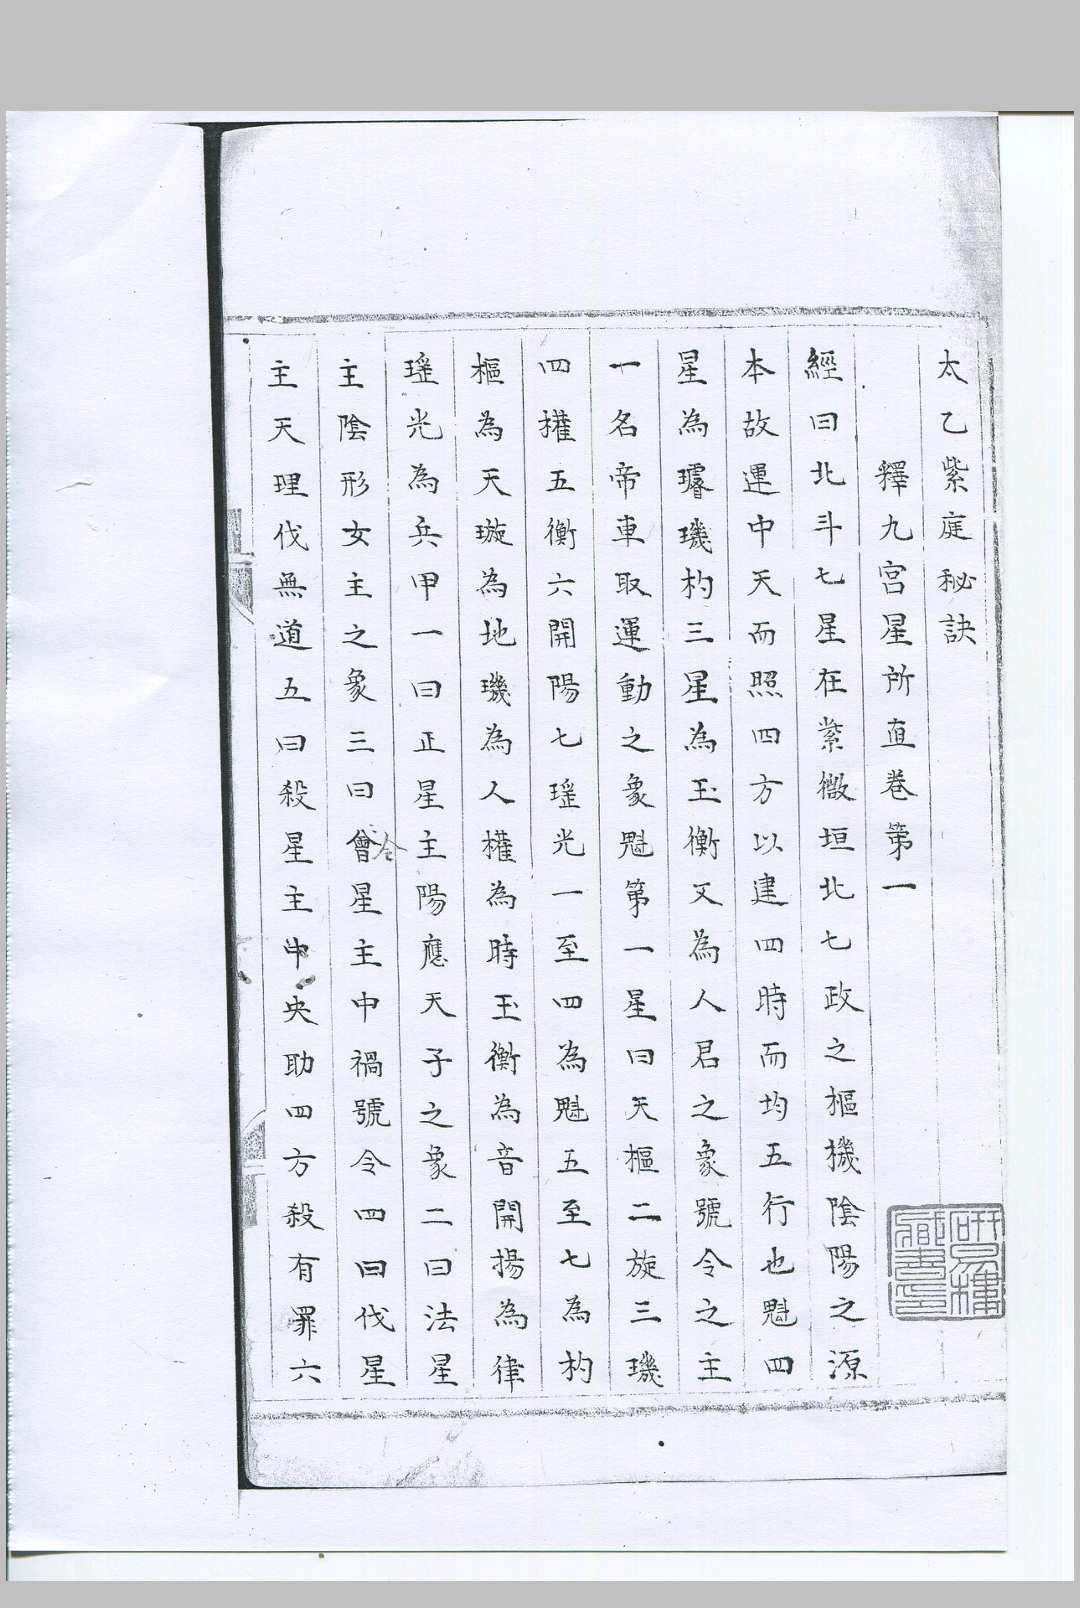 太乙紫庭秘訣
釋九宮星所直卷第一
經曰北斗七星在紫微垣北七政之樞機陰陽之源
本故運中天而照四方以建四時而均五行也魁四
星為璿璣杓三星為玉衡又為人君之象號令之主
一名帝車取運動之象魁第一星曰天樞二旋三璣
四權五衡六開陽七瑤光一至四為魁五至七為杓
樞為天璇為地璣為人權為時玉衡為音開揚為律
瑤光為兵甲一曰正星主陽應天子之象二曰法星
主陰形女主之象三曰會令星主中禍號令四曰伐星
主天理伐無道五曰殺星主中央助四方殺有罪六
研易樓
藏書印